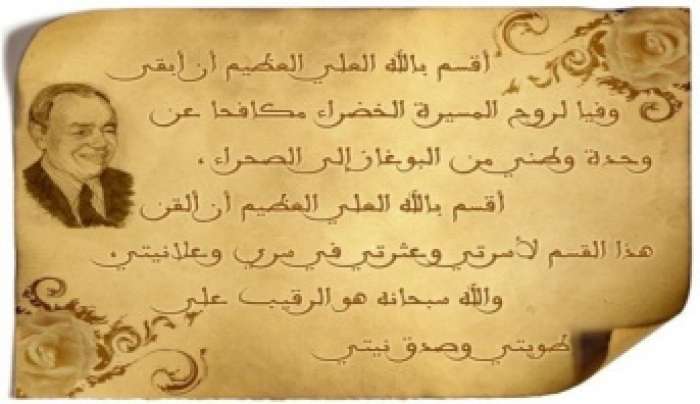 أقسم بالله العلي العظيم أن أبقى
وفيا لروح المسيرة الخضراء مكافحا عن
وحدة وطني من البوغاز إلى الصحراء ،
أقسم بالله العلي العظيم أن ألقن
هذا القسم لأسرتي وعثرتي في سري وعلانيتي.
والله سبحانه هو الرقيب على
طويتي وصدق نيتي